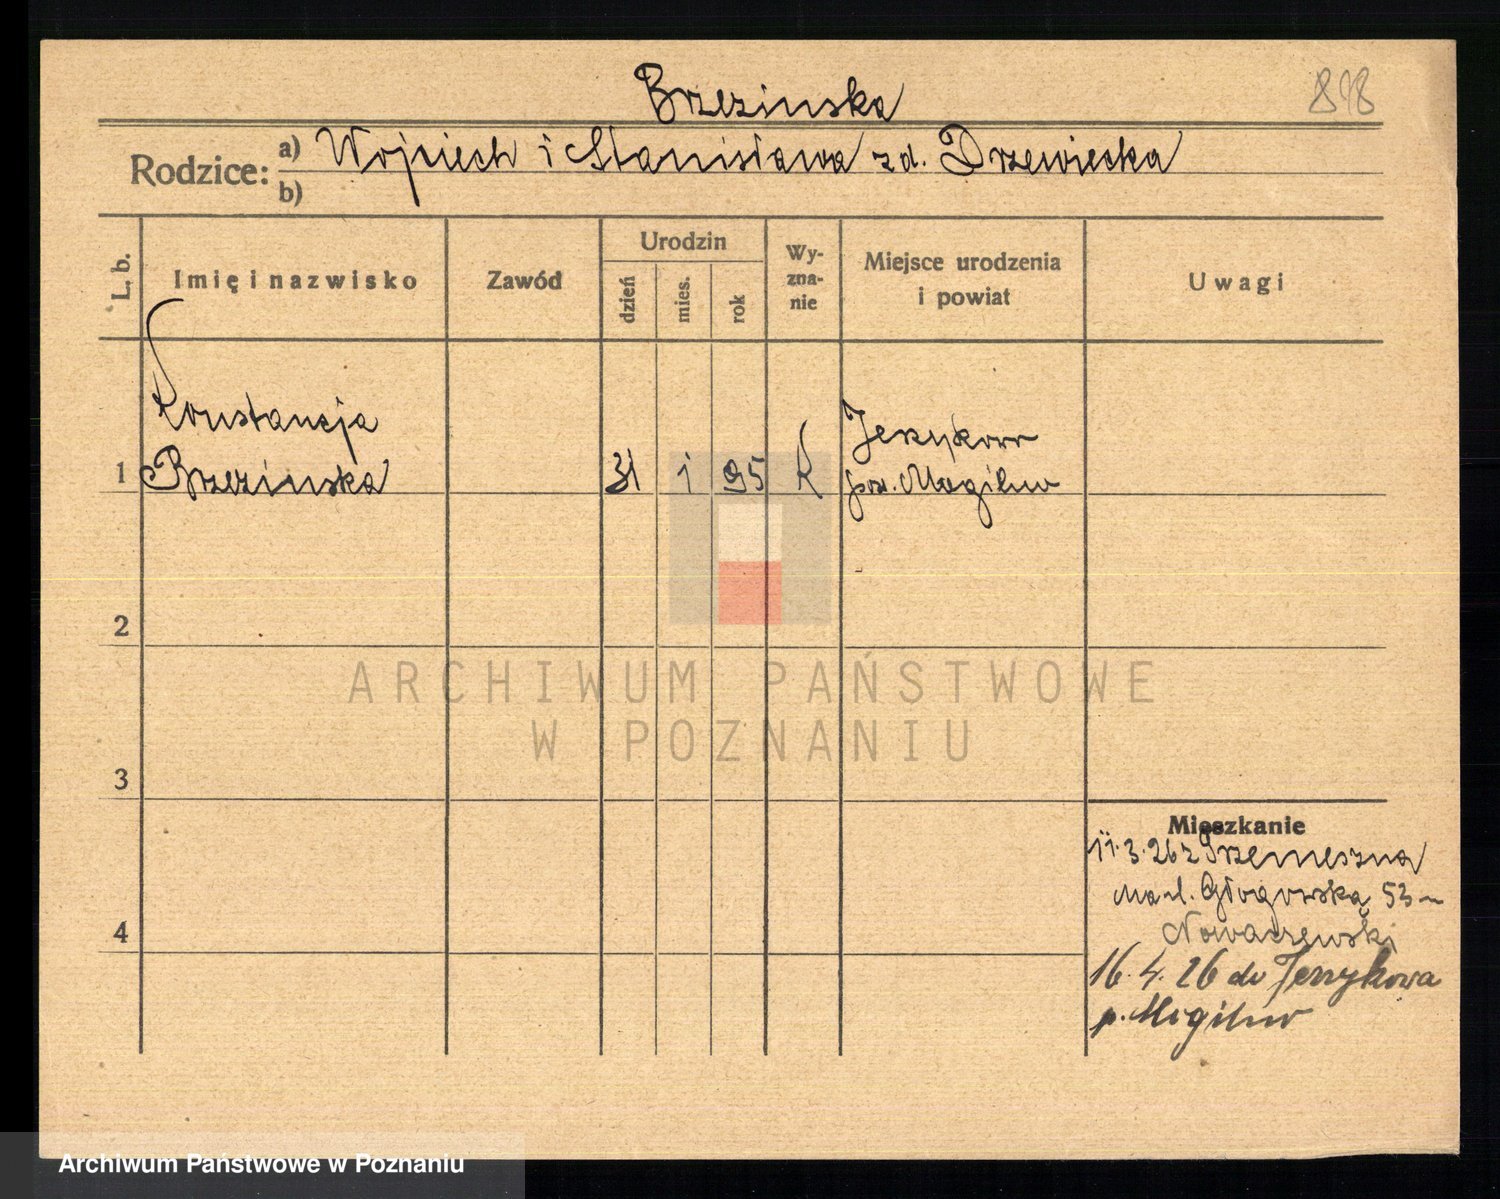 Brzezinska
898
Rodzice: a) Wojciech i Stanisława zd. Drzewiecka
b)
L. b.
Imię i nazwisko
Zawód
Urodzin
dzień
mies.
rok
Wy-
zna-
nie
Miejsce urodzenia
i powiat
Uwagi
Konstancja
1 Brzezinska 31 1 95 K
Jerzykow
pow. Mogilno
2
3
4
Mieszkanie
11.3.26 z Trzemeszna
Głogowska 53
Nowaczewski
16.4.26 do Jerzykowa
p. Mogilno
ARCHIWUM PAŃSTWOWE
W POZNANIU
Archiwum Państwowe w Poznaniu